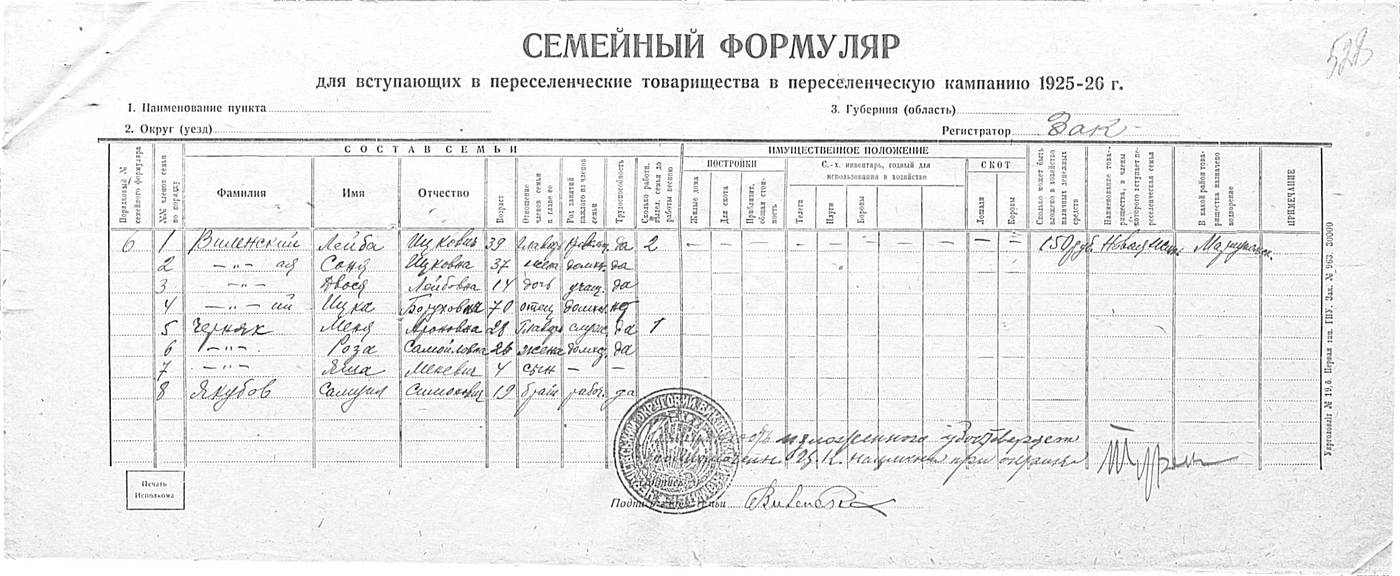 528
СЕМЕЙНЫЙ ФОРМУЛЯР
для вступающих в переселенческие товарищества в переселенческую кампанию 1925-26 г.
1. Наименование пункта
3. Губерния (область)
2. Округ (уезд)
Регистратор Зак
СОСТАВ СЕМЬИ
ИМУЩЕСТВЕННОЕ ПОЛОЖЕНИЕ
Порядковый № семейного формуляра
№№ членов семьи по порядку
Фамилия
Имя
Отчество
Возраст
Отношение членов семьи к главе ее
Род занятий каждого из членов семьи
Трудоспособность
Сколько работн. членов семьи до работы весною
ПОСТРОЙКИ
Жилые дома
Для скота
Приблизит. общая стоимость
С.-х. инвентарь, годный для использования в хозяйстве
Телеги
Плуги
Бороны
СКОТ
Лошади
Коровы
Сколько может быть вложено в хозяйство наличных денежных средств
Наименование товарищества, в члены которого вступает переселенческая семья
В какой район товарищества назначено водворение
ПРИМЕЧАНИЕ
6 1 Виленский Лейба Ицкович 39 главы да 2 — — — — — — — — 150 руб. Новая
2 —"— ая Соня Ицковна 37 жена домхоз. да
3 —"— Двося Лейбовна 14 дочь учащ. да
4 —"— ий Ицка Боруховна 70 отец домхоз.
5 Черняк Меня Ароновна 28 Главы служ. да 1
6 —"— Роза Самойловна 26 жена домхоз. да
7 —"— Яша Меневич 4 сын — —
8 Якубов Самуил Симонович 19 брат рабоч. да
изложенного удостоверяет
при
Печать Исполкома
Подпись семьи
Укрголовліт № 19.6. Первая тип. ГПУ. Зак. № 963. 30000